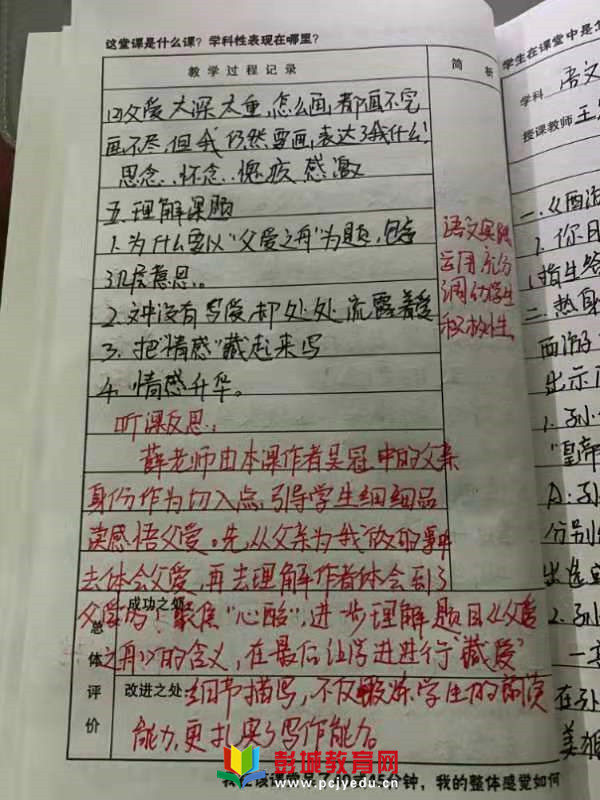 这堂课是什么课？学科性表现在哪里？
教学过程记录
简析
(2)父爱太深太重,怎么画,都画不完
画不尽,但我仍然要画,表达了我什么！
思念、怀念、愧疚 感激
五.理解课题
1.为什么要以“父爱之舟”为题,包含
几层意思。
2.文中没有写爱却处处流露着爱
3.把“情感”藏起来写
4.情感升华。
语文实践
运用充分
调动学生
积极性
听课反思：
薛老师由本课作者吴冠中的父亲
身份作为切入点,引导学生细细品
读感悟父爱。先,从父亲为我做的事
去体会父爱,再去理解作者体会到了
父爱吗！聚焦“心酸”,进一步理解题目《父爱
之舟》的含义,在最后 进行“藏爱”
细节描写,不仅锻炼学生的阅读
能力,更扎实了写作能力。
总体评价
成功之处
改进之处
彭城教育网
www.pcjyedu.com
分钟，我的整体感觉如何
学生在课堂中是怎
学科 语文
授课教师 王
一.《西游
2.你目
1.指生给
二.热身
西游
出示
1.孙
“皇帝
A:孙
分别
出选
2.孙
一
在孙
美猴